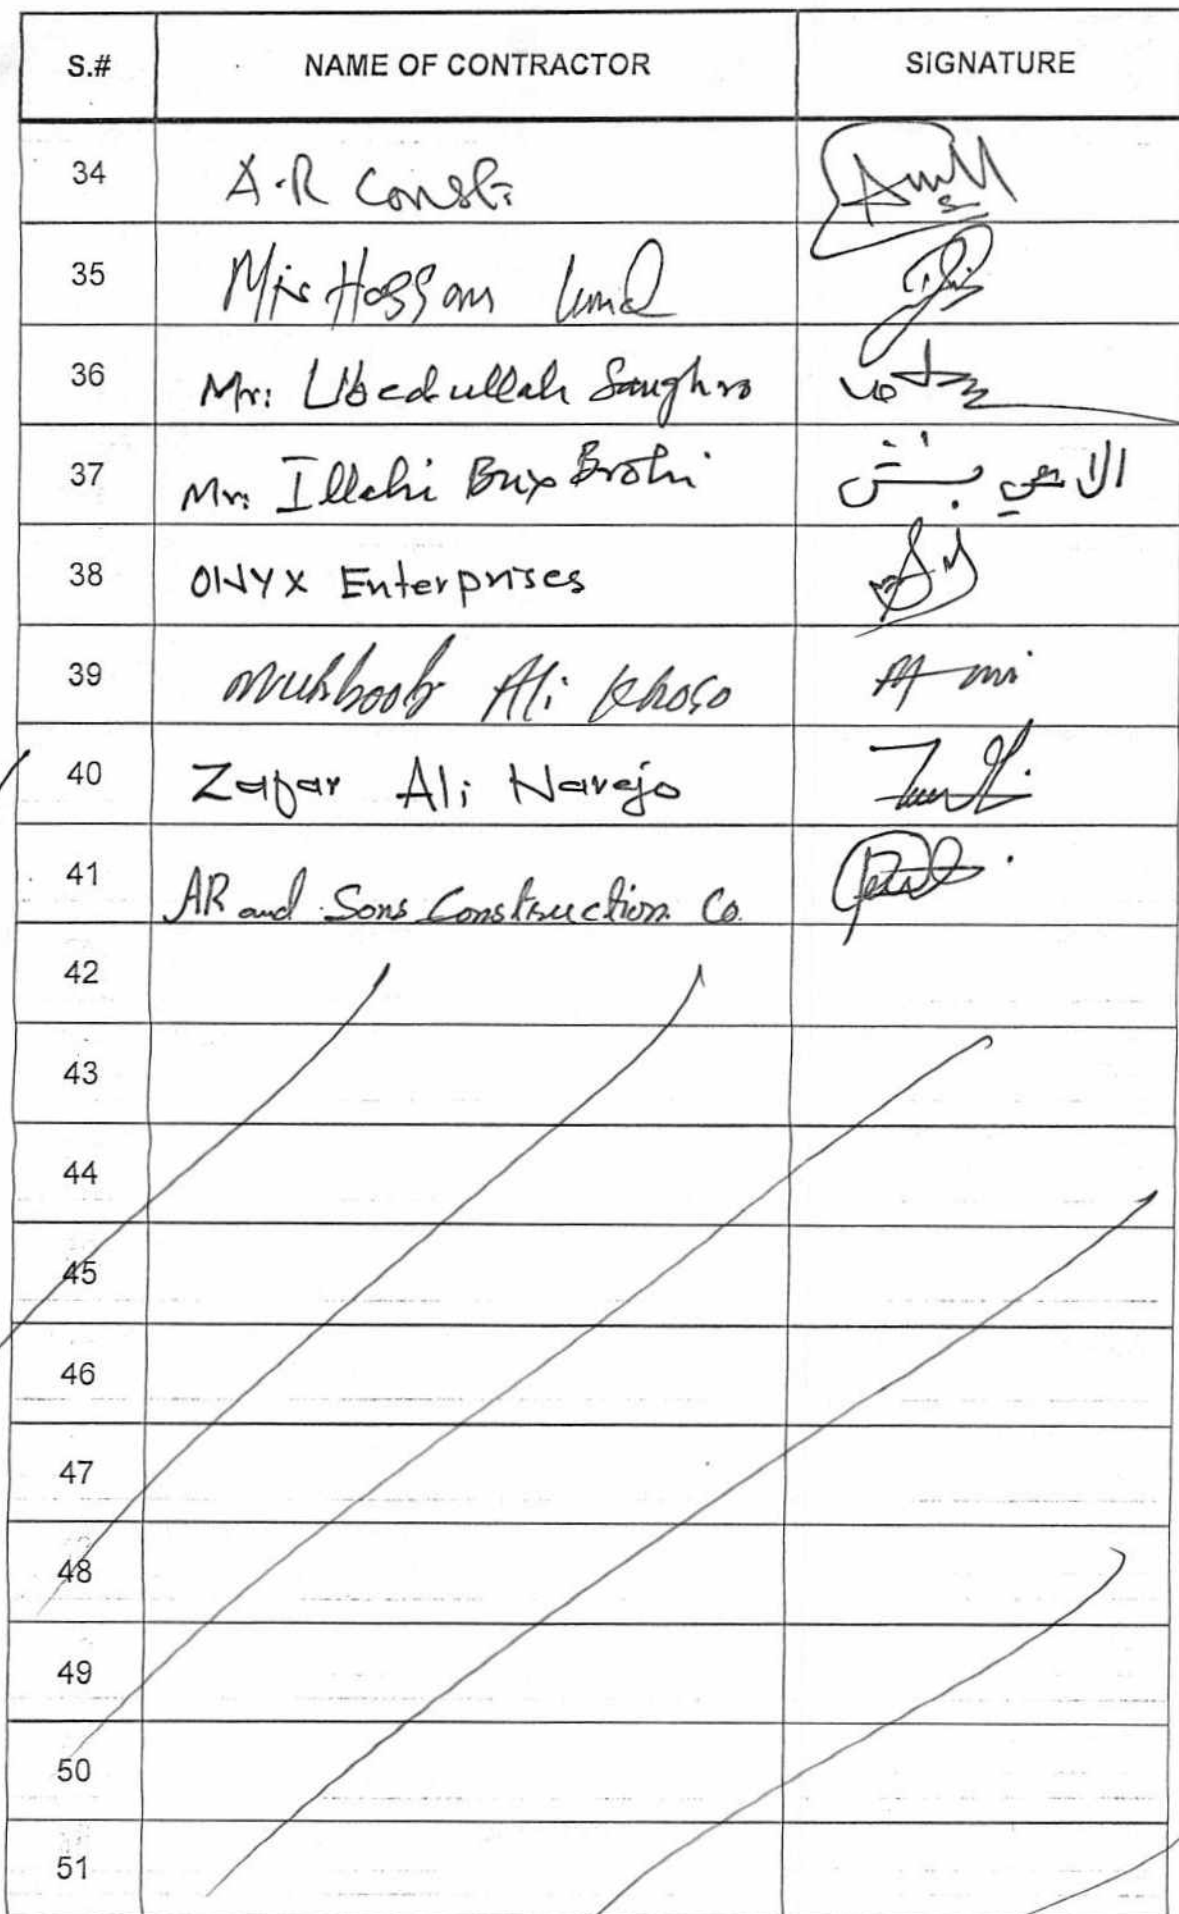 S.# NAME OF CONTRACTOR SIGNATURE
34 A.R Const:
35 Mir Hassan Lund
36 Mr: Ubedullah Sanghro
37 Mr: Illahi Bux Brohi الاهي بخش
38 ONYX Enterprises
39 Muhboob Ali Khoso
40 Zafar Ali Narejo
41 AR and Sons Construction Co.
42
43
44
45
46
47
48
49
50
51